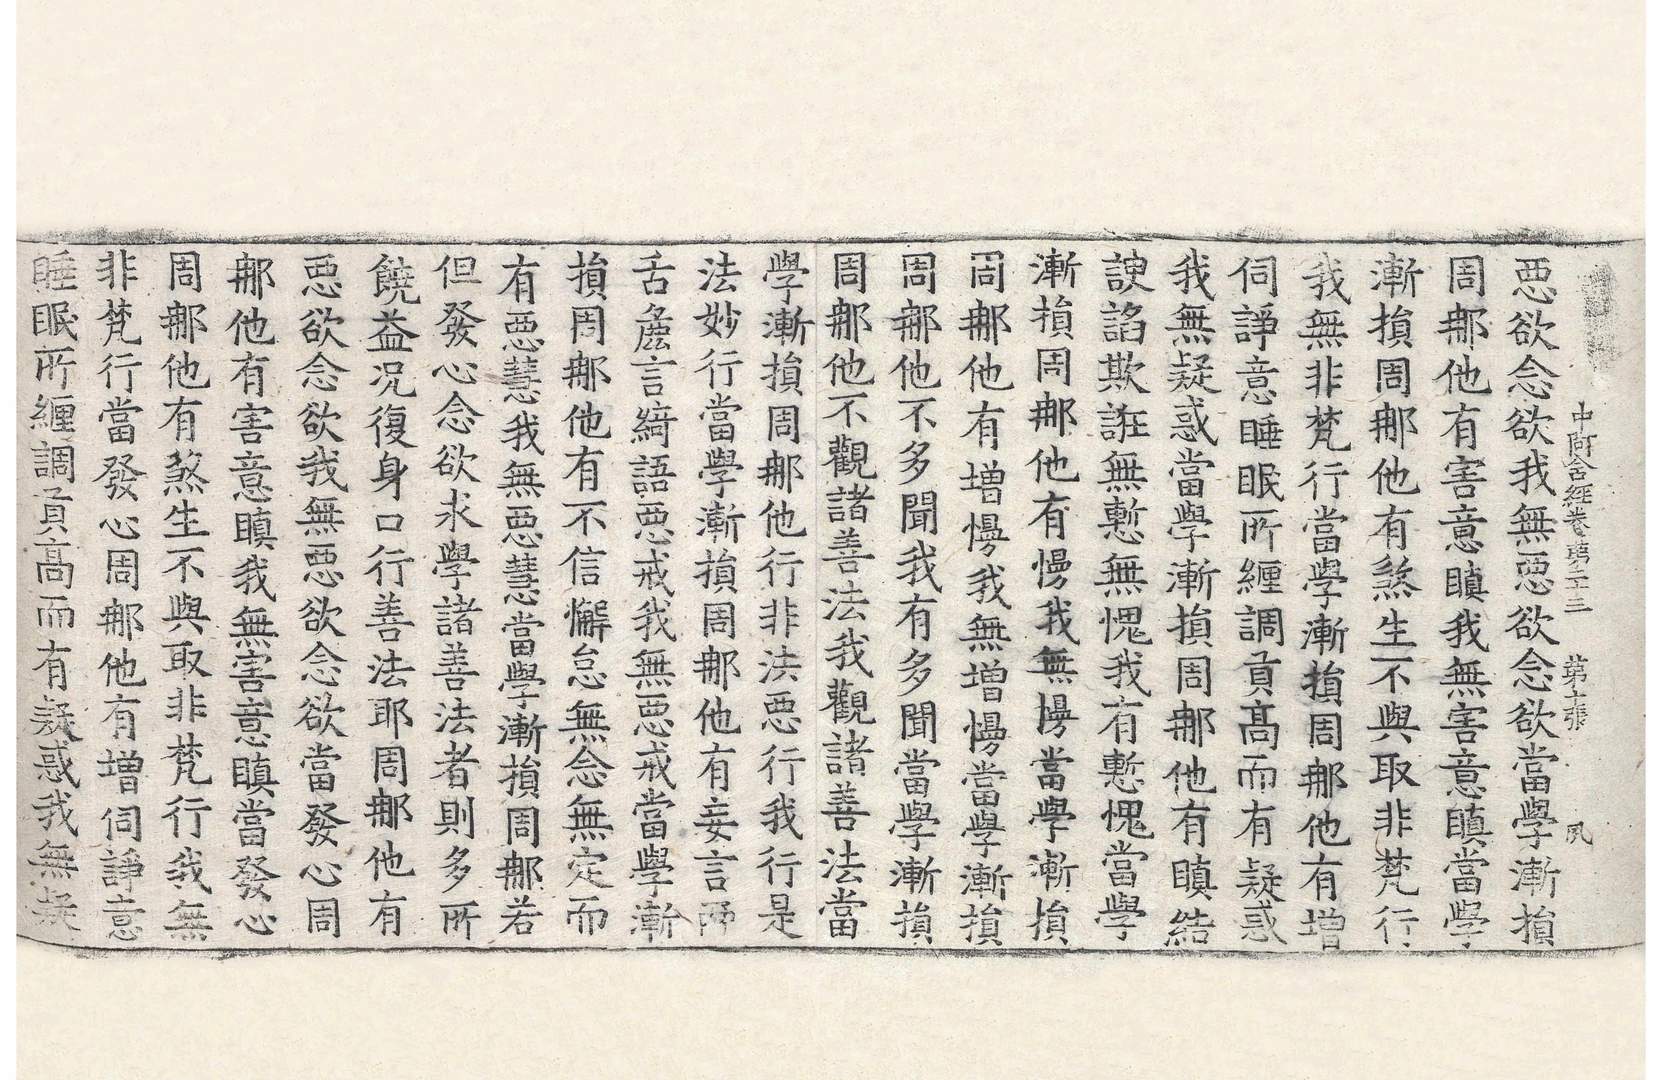 中阿含經卷第二十三 第六張 夙
惡欲念欲我無惡欲念欲當學漸損
周那他有害意瞋我無害意瞋當學
漸損周那他有煞生不與取非梵行
我無非梵行當學漸損周那他有增
伺諍意睡眠所纏調貢高而有疑惑
我無疑惑當學漸損周那他有瞋結
諛諂欺誑無慙無愧我有慙愧當學
漸損周那他有慢我無慢當學漸損
周那他有增慢我無增慢當學漸損
周那他不多聞我有多聞當學漸損
周那他不觀諸善法我觀諸善法當
學漸損周那他行非法惡行我行是
法妙行當學漸損周那他有妄言兩
舌麁言綺語惡戒我無惡戒當學漸
損周那他有不信懈怠無念無定而
有惡慧我無惡慧當學漸損周那若
但發心念欲求學諸善法者則多所
饒益况復身口行善法耶周那他有
惡欲念欲我無惡欲念欲當發心周
那他有害意瞋我無害意瞋當發心
周那他有煞生不與取非梵行我無
非梵行當發心周那他有增伺諍意
睡眠所纏調貢高而有疑惑我無疑